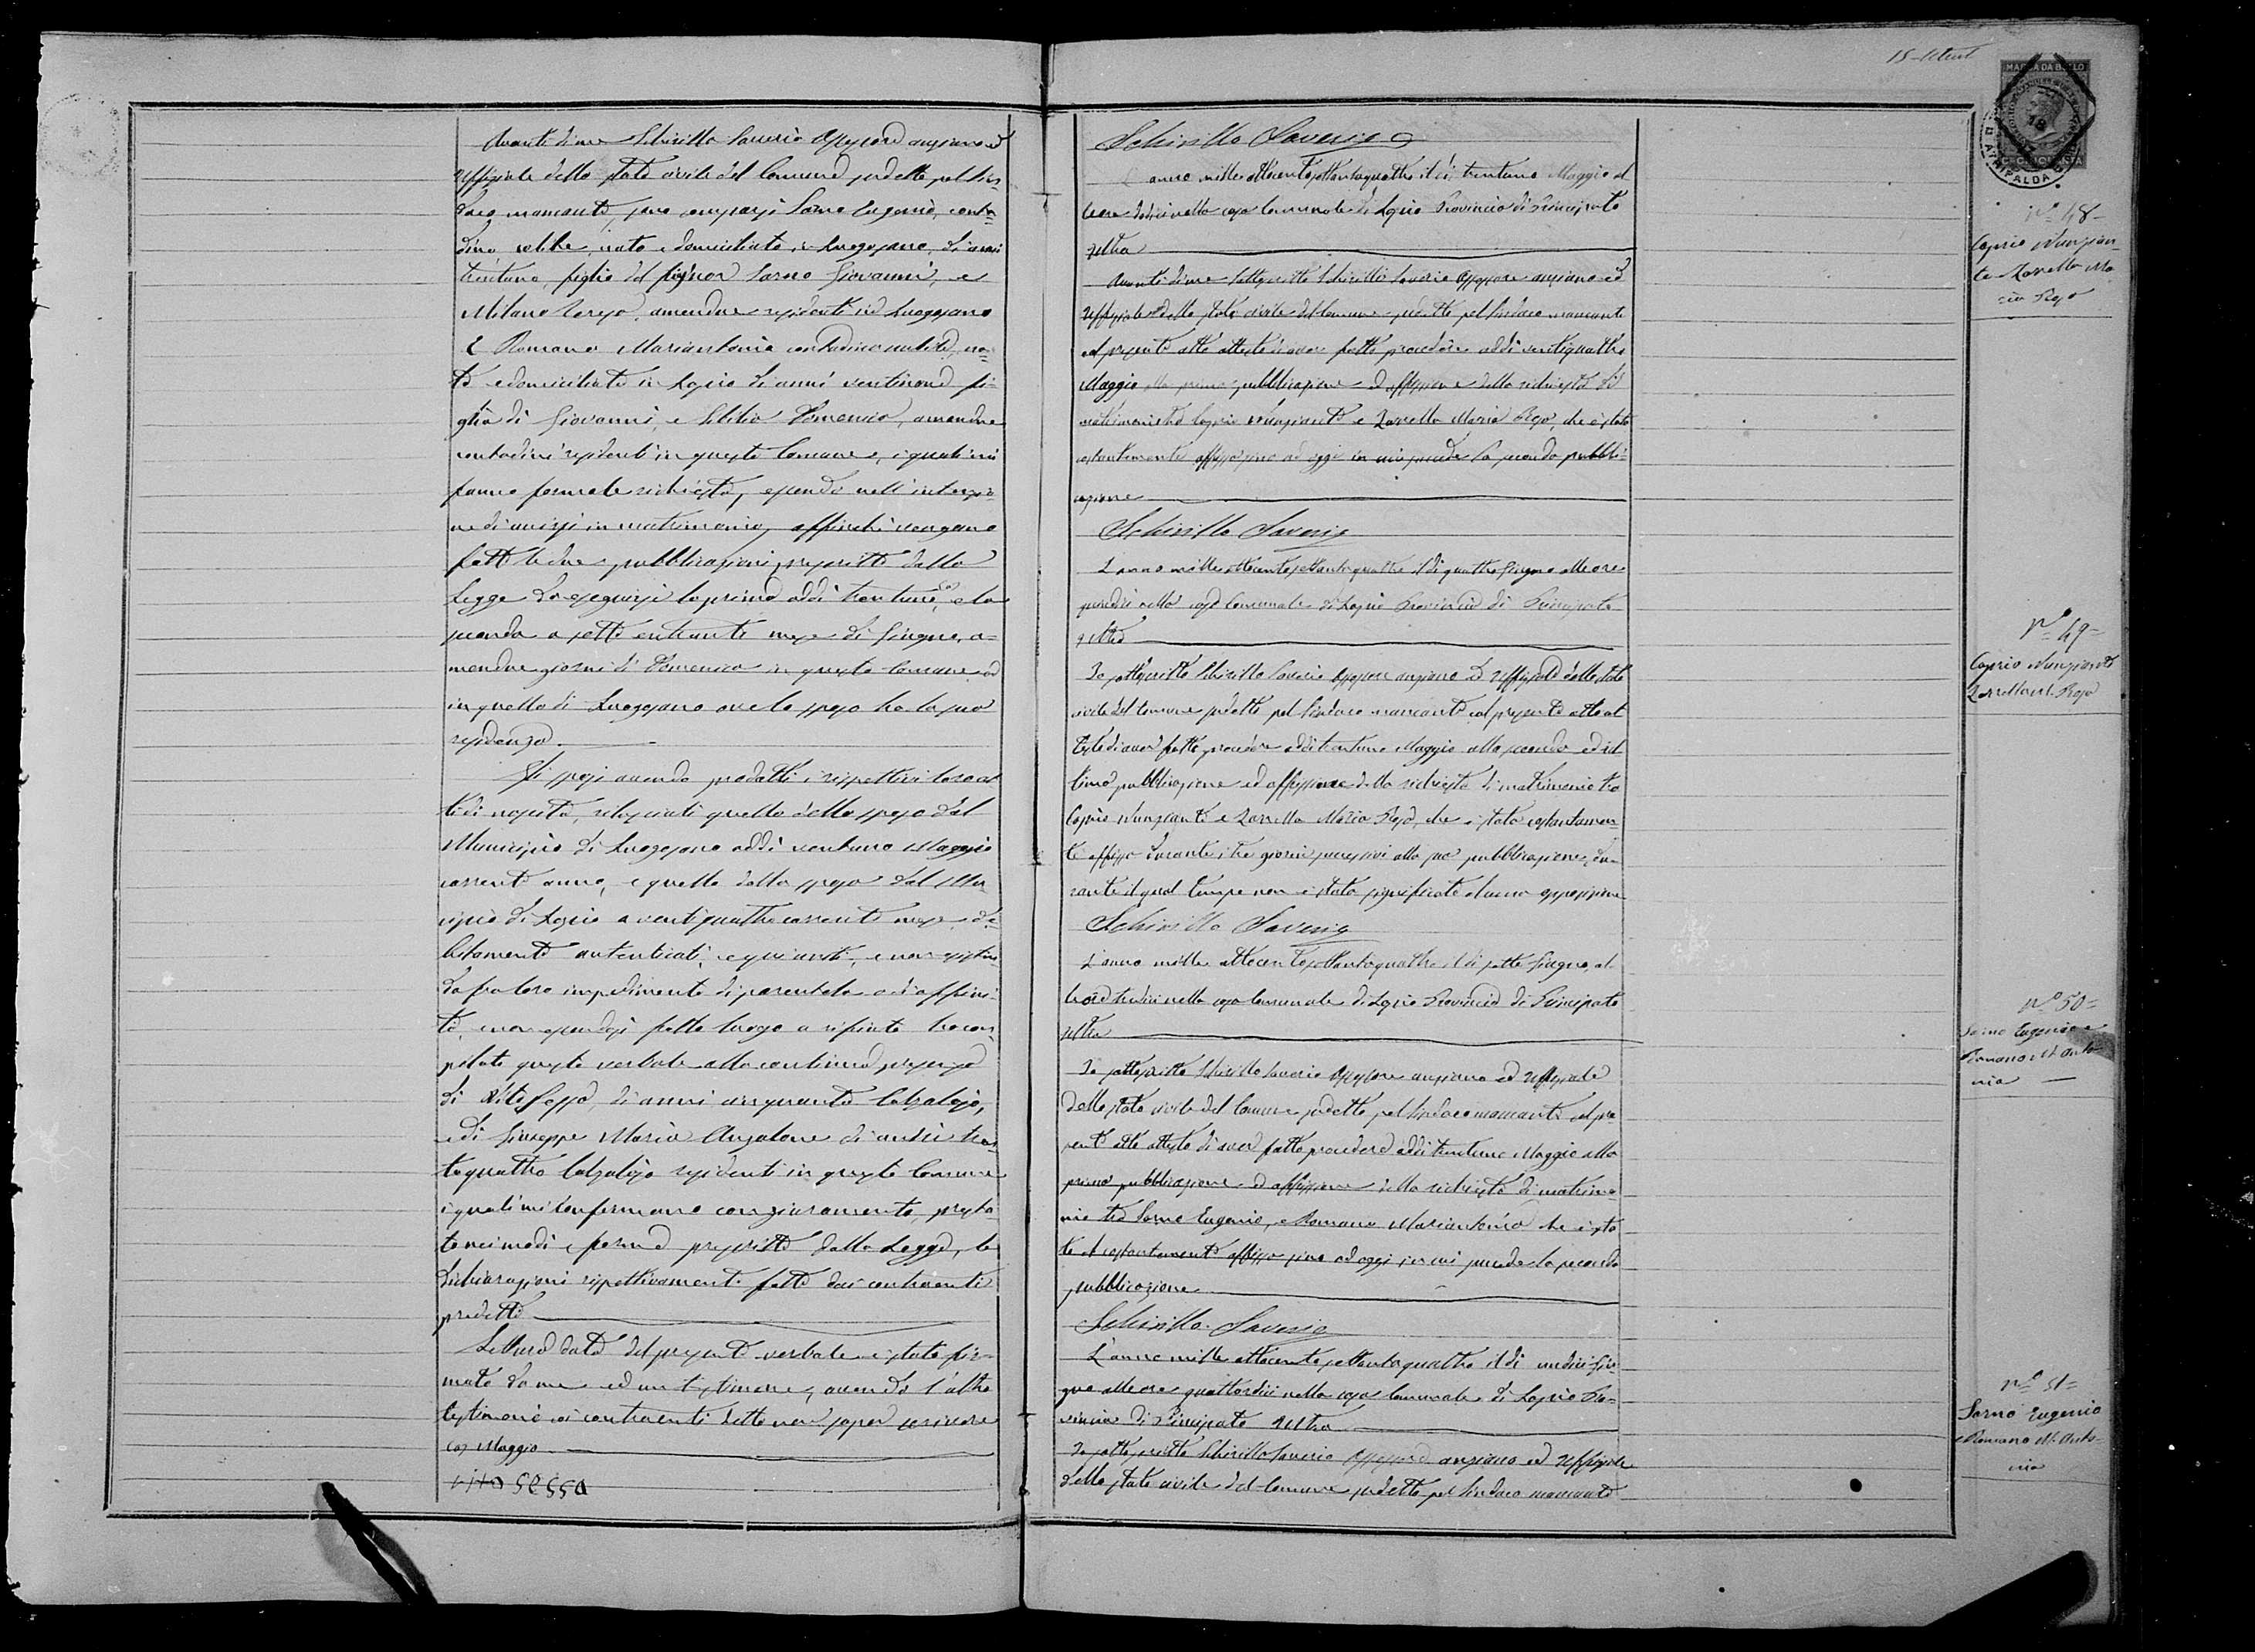 Avanti di me Schirillo Saverio Assessore anziano ed
Uffiziale dello stato civile del Comune sudetto pel Sin-
daco mancante, sono comparsi Sarno Eugenio, conta-
dino celibe, nato e domiciliato in Luogosano, di anni
trentuno figlio del fu Sarno Giovanni, e
Milano Teresa, amendue residenti in Luogosano
E Romano Mariantonia contadina nubile, na-
ta e domiciliata in Lapio di anni ventinove fi-
glia di Giovanni, e Domenica, amendue
contadini residenti in questo Comune, i quali mi
fanno formale richiesta, essendo nell'intenzio-
ne di unirsi in matrimonio, affinchè vengano
fatte le due pubblicazioni prescritte dalla
Legge da eseguirsi la prima addì trentuno, e la
seconda a sette entrante mese di Giugno, a-
mendue giorni di Domenica in questo Comune ed
in quello di Luogosano ove lo sposo ha la sua
residenza.
Gli sposi avendo prodotti i rispettivi loro at-
ti di nascita, rilasciati quello dello sposo dal
Municipio di Luogosano addì ventuno Maggio
corrente anno, e quello della sposa dal Mu-
cipio di Lapio a ventiquattro corrente mese de-
bitamente autenticati, e non esisten-
do fra loro impedimento di parentela o di affini-
tà, e non essendosi fatto luogo a rifiuto ho com-
pilato questo verbale alla continua presenza
di Vito Sessa, di anni cinquanta Calzolajo,
e di Giuseppe Maria Anzalone di anni tren-
taquattro Calzolajo residenti in questo Comune
i quali mi confermano con giuramento, presta-
to nei modi e forme prescritte dalla Legge, le
dichiarazioni rispettivamente fatte dai contraenti
predetti
Lettura data del presente verbale è stato fir-
mato da me ed un testimone, avendo l'altro
testimonio e i contraenti detto non saper scrivere
Maggio
vito sessa
15
MARCA DA BOLLO
Schirillo Saverio
L'anno mille ottocentosettantaquattro il dì trentuno Maggio al
le ore dodici nella casa Comunale di Lapio Provincia di Principato
Ultra
Avanti di me sottoscritto Schirillo Saverio Assessore anziano ed
Uffiziale dello stato civile del Comune sudetto pel Sindaco mancante
col presente atto attesto di aver fatto procedere addì ventiquattro
Maggio alla prima pubblicazione ed affissione della richiesta di
matrimonio tra Caprio Nunziante e Zarrella Maria Rosa, che è stata
costantemente affissa sino ad oggi in cui succede la seconda pubbli-
cazione
Schirillo Saverio
L'anno mille ottocentosettantaquattro il dì quattro Giugno alle ore
quindici nella casa Comunale di Lapio Provincia di Principato
Ultra
Io sottoscritto Schirillo Saverio Assessore anziano ed Uffiziale dello stato
civile del Comune sudetto pel Sindaco mancante col presente atto at
testo di aver fatto procedere addì trentuno Maggio alla seconda ed ul
tima pubblicazione ed affissione della richiesta di matrimonio tra
Caprio Nunziante e Zarrella Maria Rosa, che è stata costantemen-
te affissa durante i tre giorni successivi alla sua pubblicazione, du-
rante il qual tempo non è stata significata alcuna opposizione
Schirillo Saverio
L'anno mille ottocentosettantaquattro il dì sette Giugno, al
le ore tredici nella casa Comunale di Lapio Provincia di Principato
Ultra
Io sottoscritto Schirillo Saverio Assessore anziano ed Uffiziale
dello stato civile del Comune sudetto pel Sindaco mancante col pre
sente atto attesto di aver fatto procedere addì trentuno Maggio alla
prima pubblicazione ed affissione della richiesta di matrimo-
nio tra Sarno Eugenio, e Romano Mariantonia che è sta
ta costantemente affissa sino ad oggi in cui succede la seconda
pubblicazione
Schirillo Saverio
L'anno mille ottocentosettantaquattro il dì undici Giu-
gno alle ore quattordici nella casa Comunale di Lapio Pro-
vincia di Principato Ultra
Io sottoscritto Schirillo Saverio Assessore anziano ed Uffiziale
dello stato civile del Comune sudetto pel Sindaco mancante
N° 48
Caprio Nunzian-
te Zarrella Ma
ria Rosa
N° 49
Caprio Nunziante
Zarrella M. Rosa
N° 50
Sarno Eugenio e
Romano M. Anto-
nia
N° 51
Sarno Eugenio
e Romano M. Anto-
nia